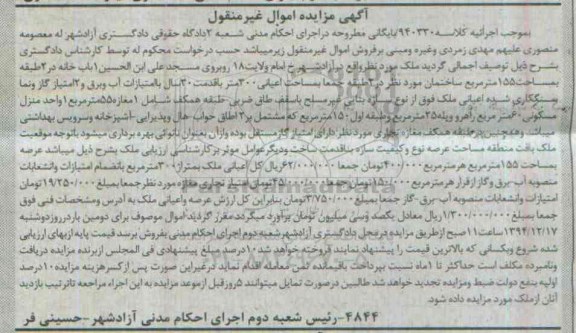 آگهی مزایده اموال غیرمنقول
بموجب اجرائیه کلاسه ۹۴۰۳۳۰ بایگانی مطروحه در اجرای احکام مدنی شعبه ۲ دادگاه حقوقی دادگستری آزادشهر له معصومه
منصوری علیهم مهدی زمردی وغیره ومبنی برفروش اموال غیرمنقول زیرمیباشد حسب درخواست محکوم له توسط کارشناس دادگستری
بشرح ذیل توصیف اجمالی گردید ملک مورد نظر واقع در آزادشهر خ امام ولایت ۱۸ روبروی مسجد علی ابن الحسین ۱ باب خانه در ۲ طبقه
بمساحت ۱۵۵ مترمربع ساختمان مورد نظر در ۲ طبقه جمعا بمساحت اعیانی ۳۰۰ متر باقدمت ۳۰ سال باامتیاز آب وبرق و ۲ امتیاز گاز ونما
وسنگکاری شده اعیانی ملک فوق از نوع سازه بنایی غیرمسلح باسقف طاق ضربی طبقه همکف شامل ۱ مغازه ۵۵ مترمربع ۱ واحد منزل
مسکونی ۶۰ متر مربع راهرو وپله ۲۵ مترمربع وطبقه اول ۱۵۰ مترمربع که مشتمل بر ۲ اطاق خواب حال وپذیرایی آشپزخانه وسرویس بهداشتی
میباشد وهمچنین درطبقه همکف مغازه تجاری مورد نظر دارای امتیاز گازمستقل بوده وازآن بعنوان نانوائی بهره برداری میشود باتوجه موقعیت
ملک بافت منطقه مساحت عرصه نوع وکیفیت سازه باقدمت ساخت ودیگرعوامل موثر بر کارشناسی ارزیابی ملک بشرح ذیل میباشد عرصه
مساحت ۱۵۵ مترمربع هرمترمربع ۴۰۰/۰۰۰ تومان جمعا ۶۲/۰۰۰/۰۰۰ ریال کل اعیانی ملک بمتراژ ۳۰۰ مترمربع باانضمام امتیازات وانشعابات
منصوبه آب برق وگاز ازقرار هرمترمربع ۱۵۰/۰۰۰ تومان جمعا ۴۵/۰۰۰/۰۰۰ تومان امتیاز تجاری مغازه مورد نظرجمعا بمبلغ ۱۹/۲۵۰/۰۰۰ تومان
امتیازات وانشعابات منصوبه آب برق گاز جمعا بمبلغ ۳/۷۵۰/۰۰۰ تومان بنابراین کل ارزش عرصه واعیانی ملک به آدرس ومشخصات فنی فوق
جمعا بمبلغ ۱/۳۰۰/۰۰۰/۰۰۰ ریال معادل یکصد وسی میلیون تومان برآورد میگردد مقرر گردید اموال موصوف برای دومین بار درروز دوشنبه
۱۳۹۴/۱۲/۱۷ ساعت ۱۱ صبح ازطریق مزایده درمحل دادگستری آزادشهر شعبه دوم اجرای احکام مدنی بفروش برسد قیمت پایه ازبهای ارزیابی
شده شروع وبکسانی که بالاترین قیمت را پیشنهاد نمایند فروخته خواهد شد ۱۰ درصد مبلغ پیشنهادی فی المجلس ازبرنده مزایده دریافت
ونامبرده مکلف است حداکثر تا ۱ ماه نسبت بپرداخت باقیمانده ثمن معامله اقدام نماید درغیراین صورت پس ازکسرهزینه مزایده ۱۰ درصد
اولیه بنفع دولت ضبط ومزایده تجدید خواهد شد طالبین درصورت تمایل میتوانند ۵ روز قبل ازموعد مزایده به این اجراء مراجعه تاترتیب بازدید
آنان ازملک مورد مزایده داده شود.
۴۸۴۴-رئیس شعبه دوم اجرای احکام مدنی آزادشهر-حسینی فر